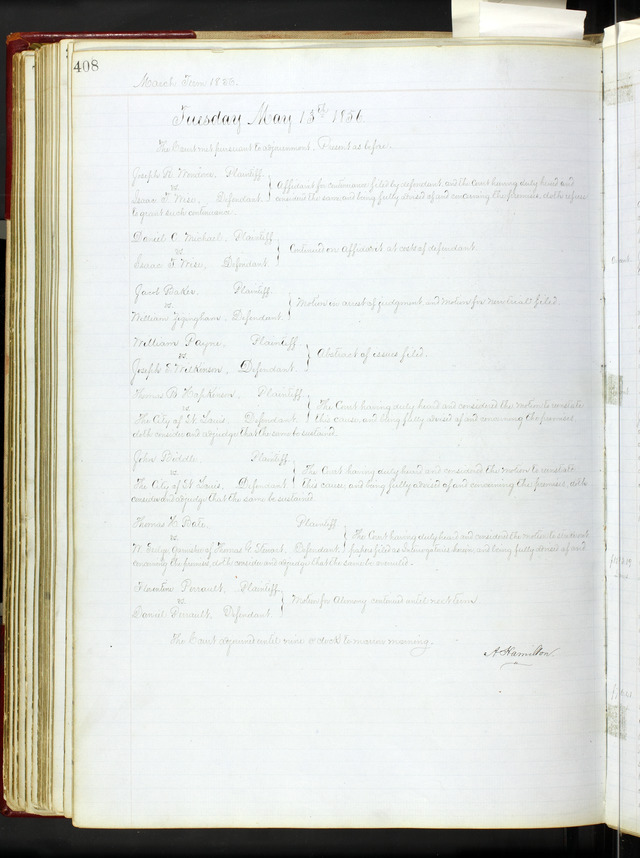 408
March Term 185
Tuesday May 13th 1856
The Court met pursuant to adjournment. Present as before.
Joseph R. Plaintiff
vs.
Isaac T. Wise, Defendant.
Affidavit for continuance filed by defendant, and the Court having duly heard and
considered the same and being fully advised of and concerning the premises, doth refuse
to grant such continuance.
Daniel C. Michael, Plaintiff,
vs.
Isaac T. Wise, Defendant.
Continued on affidavit at cost of defendant.
Jacob Baker, Plaintiff
vs.
William Defendant
Motion in arrest of judgment and motion for new trial filed.
William Payne, Plaintiff
vs.
Joseph Wilkinson, Defendant.
Abstract of issues filed.
Thomas B. Hopkinson, Plaintiff
vs.
The City of St Louis, Defendant
The Court having duly heard and considered the motion to reinstate
this cause, and being fully advised of and concerning the premises
doth consider and adjudge that the same be sustained
John Biddle Plaintiff
vs.
The City of St Louis, Defendant
The Court having duly heard and considered the motion to reinstate
this cause, and being fully advised of and concerning the premises, doth
consider and adjudge that the same be sustained
Thomas H. Plaintiff
vs.
of Thomas G. Stewart, Defendant
The Court having duly heard and considered the motion to
papers filed as herein, and being fully advised of and
concerning the premises, doth consider and adjudge that the same be
Perrault, Plaintiff
vs.
Daniel Perrault, Defendant.
Motion for Alimony continued until next term
The Court adjourned until nine o'clock to morrow morning.
A Hamilton